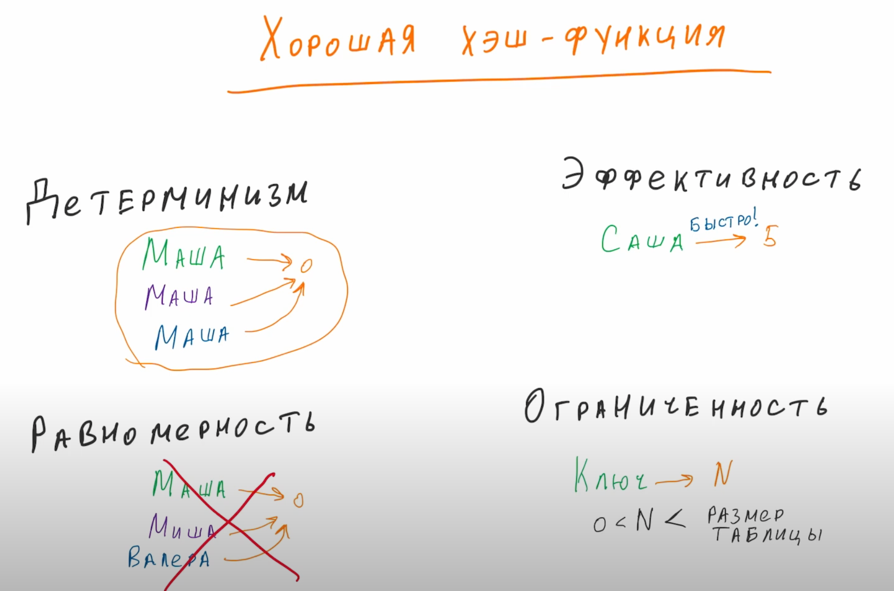 Хорошая хэш-функция
Детерминизм
Маша → 0
Маша
Маша
Эффективность
Саша быстро! → 5
Равномерность
Маша → 0
Миша
Валера
Ограниченность
Ключ → N
0 < N < размер
таблицы